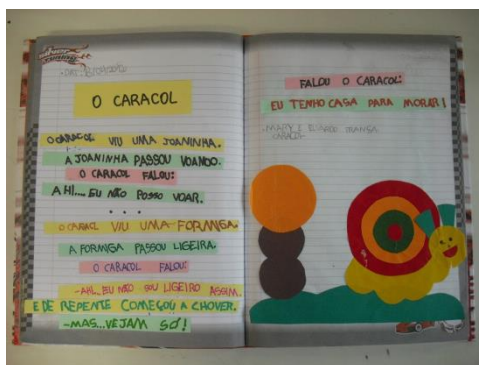 O CARACOL
O CARACOL VIU UMA JOANINHA.
A JOANINHA PASSOU VOANDO.
O CARACOL FALOU:
A HI... EU NÃO POSSO VOAR.
...
O CARACOL VIU UMA FORMIGA.
A FORMIGA PASSOU LIGEIRA.
O CARACOL FALOU:
-AHI... EU NÃO SOU LIGEIRO ASSIM.
E DE REPENTE COMEÇOU A CHOVER.
-MAS... VEJAM SÓ!
FALOU O CARACOL:
EU TENHO CASA PARA MORAR!
MARY E EDUARDO FRANÇA
CARACOL